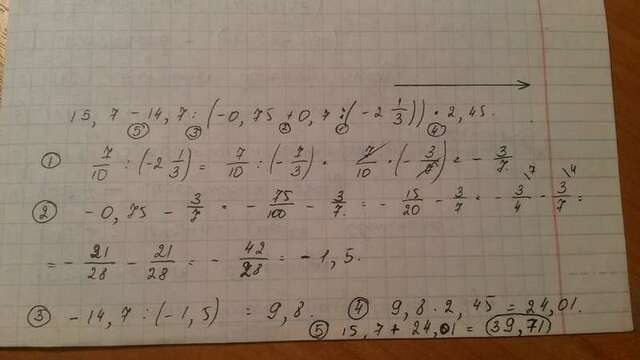 15,7 - 14,7 : (-0,75 + 0,7 : (-2 1/3)) · 2,45.
⑤ ③ ② ① ④
① 7/10 : (-2 1/3) = 7/10 : (-7/3) = 7/10 · (-3/7) = - 3/7.
② -0,75 - 3/7 = - 75/100 - 3/7 = - 15/20 - 3/7 = - 3/4 - 3/7 =
= - 21/28 - 21/28 = - 42/28 = -1,5.
③ -14,7 : (-1,5) = 9,8. ④ 9,8 · 2,45 = 24,01.
⑤ 15,7 + 24,01 = 39,71